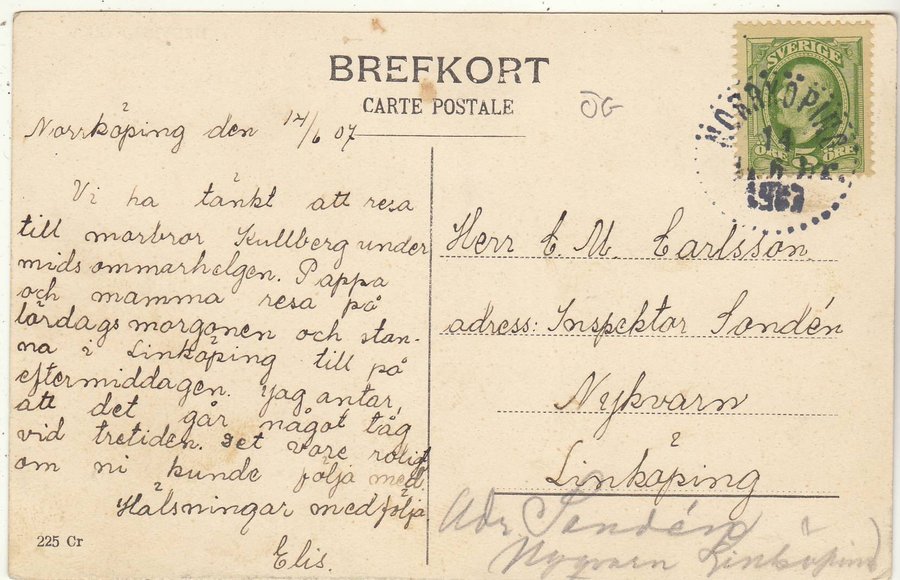 BREFKORT
CARTE POSTALE
ÖG
SVERIGE
5
ÖRE
NORRKÖPING
14
6
1907
Norrköping den 14/6 07
Vi ha tänkt att resa
till morbror Kullberg under
midsommarhelgen. Pappa
och mamma resa på
lördagsmorgonen och stan-
na i Linköping till på
eftermiddagen. Jag antar,
att det går något tåg
vid tretiden. Det vore roligt
om ni kunde följa med.
Hälsningar medfölja
Elis.
225 Cr
Herr C. M. Carlsson.
adress: Inspektor Sondén
Nykvarn
Linköping
Adr Sondén
Nyqvarn Linköping)